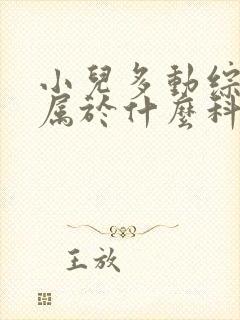 小兒多動綜
屬於什麼科
王放